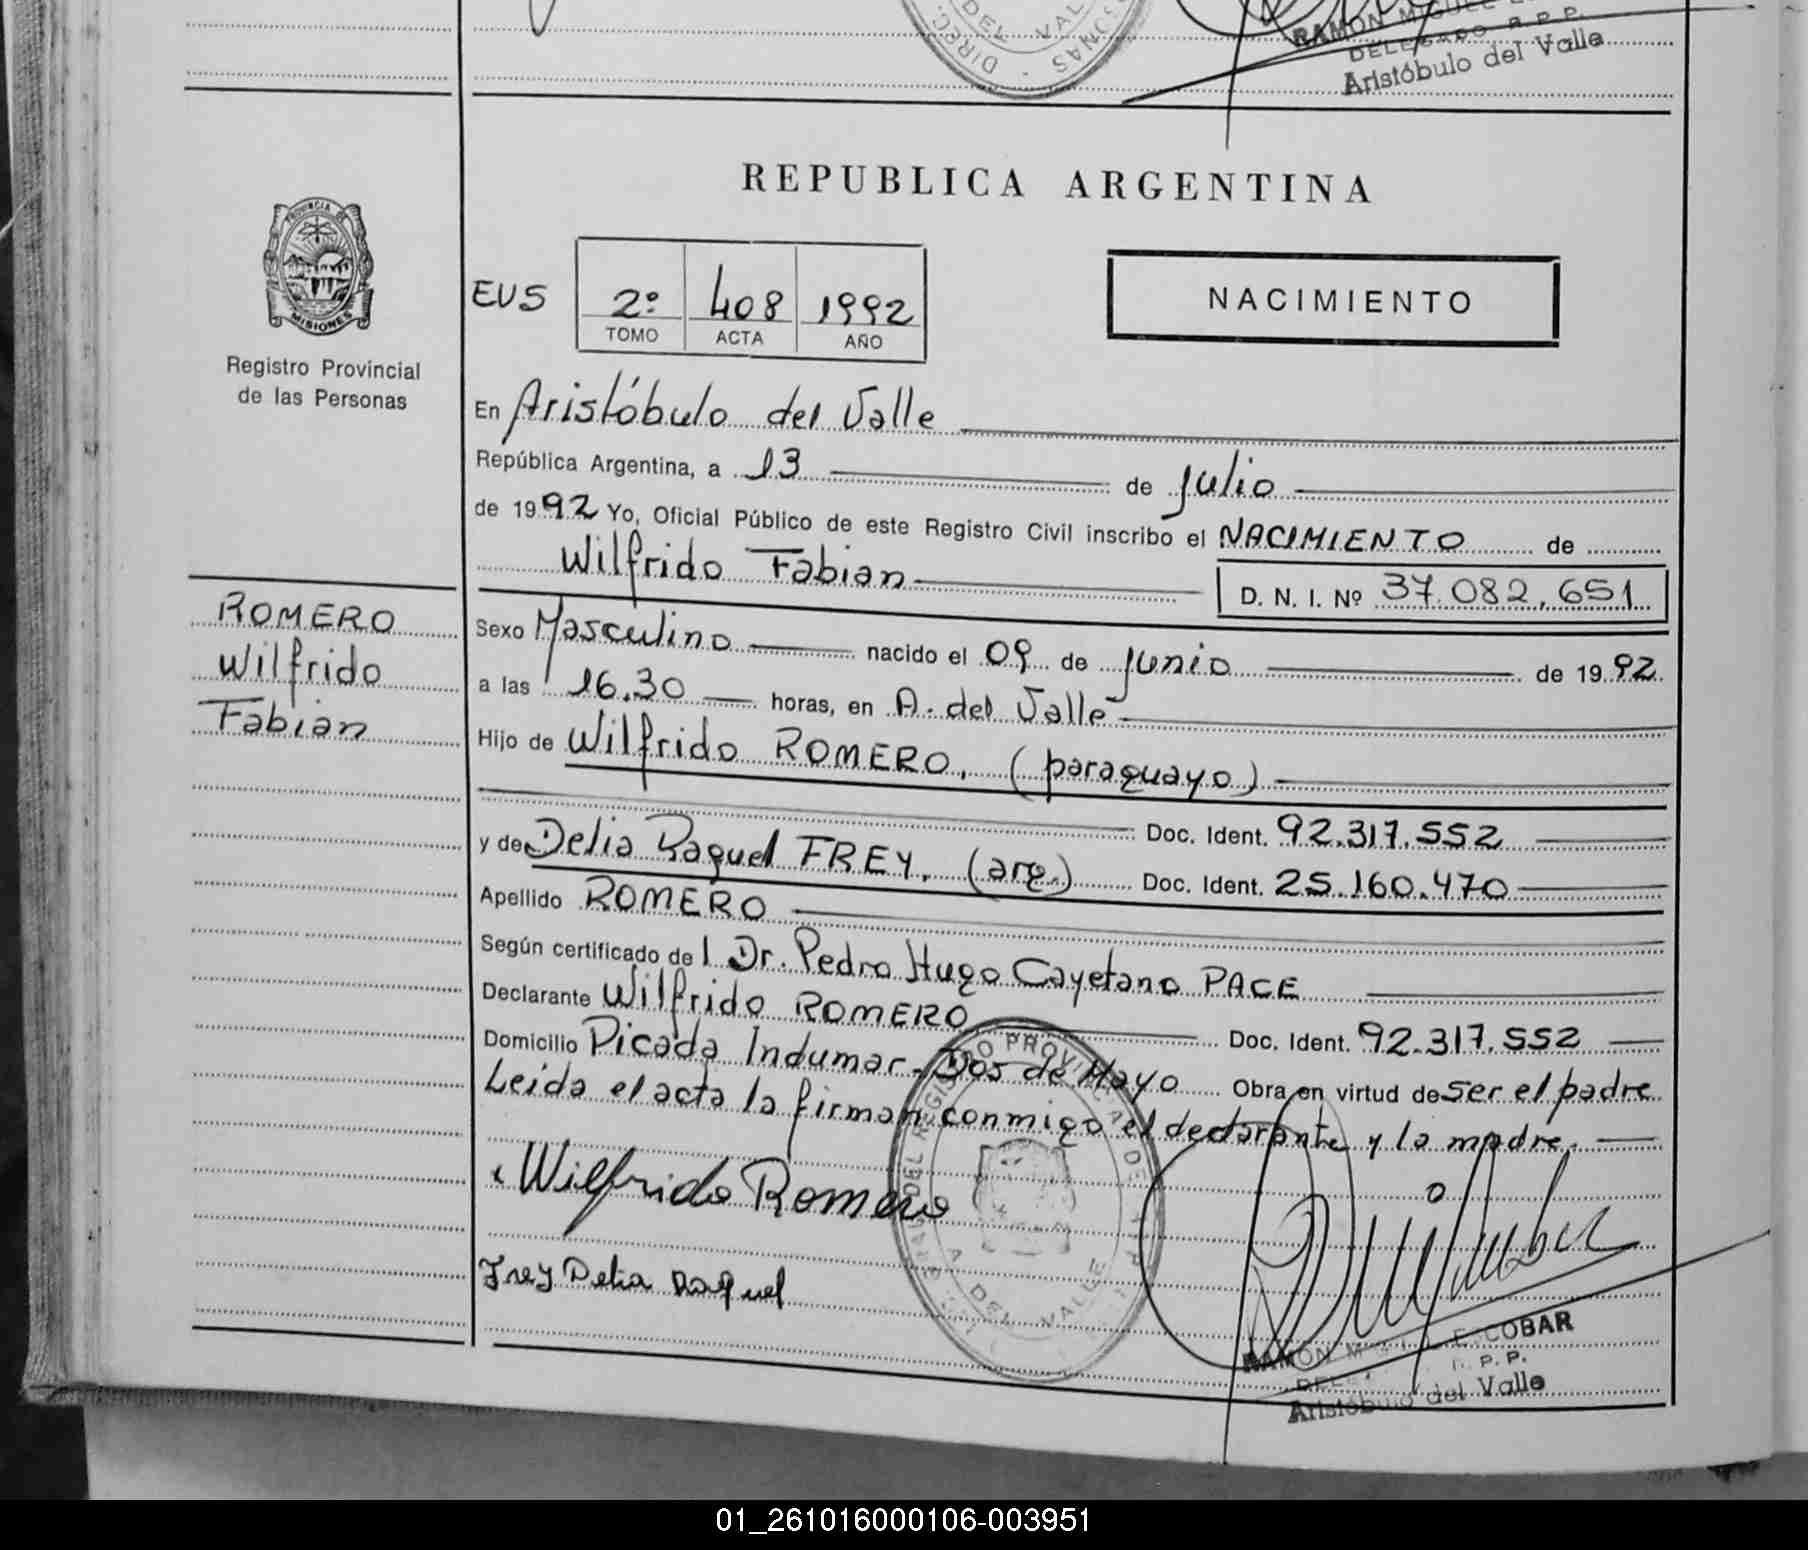 DIREC.
DEL VAL
RAMON MIGUEL
DELEGADO R.P.P.
Aristóbulo del Valle
REPUBLICA ARGENTINA
PROVINCIA DE
MISIONES
Registro Provincial
de las Personas
EUS
2º 408 1992
TOMO ACTA AÑO
NACIMIENTO
En Aristóbulo del Valle
República Argentina, a 13 de Julio
de 1992 Yo, Oficial Público de este Registro Civil inscribo el NACIMIENTO de
Wilfrido Fabian
D. N. I. Nº 37.082.651
ROMERO
Wilfrido
Fabian
Sexo Masculino nacido el 09 de Junio de 1992
a las 16.30 horas, en A. del Valle
Hijo de Wilfrido ROMERO, (paraguayo)
Doc. Ident. 92.317.552
y de Delia Raquel FREY, (arg.) Doc. Ident. 25.160.470
Apellido ROMERO
Según certificado de l Dr. Pedro Hugo Cayetano PACE
Declarante Wilfrido ROMERO Doc. Ident. 92.317.552
Domicilio Picada Indumar - Dos de Mayo Obra en virtud de ser el padre
Leida el acta la firman conmigo el declarante y la madre.
Wilfrido Romero
Frey Delia Raquel
DEL REGISTRO PROVINCIAL DE
A. DEL VALLE
RAMON MIGUEL ESCOBAR
P.P.
Aristóbulo del Valle
01_261016000106-003951